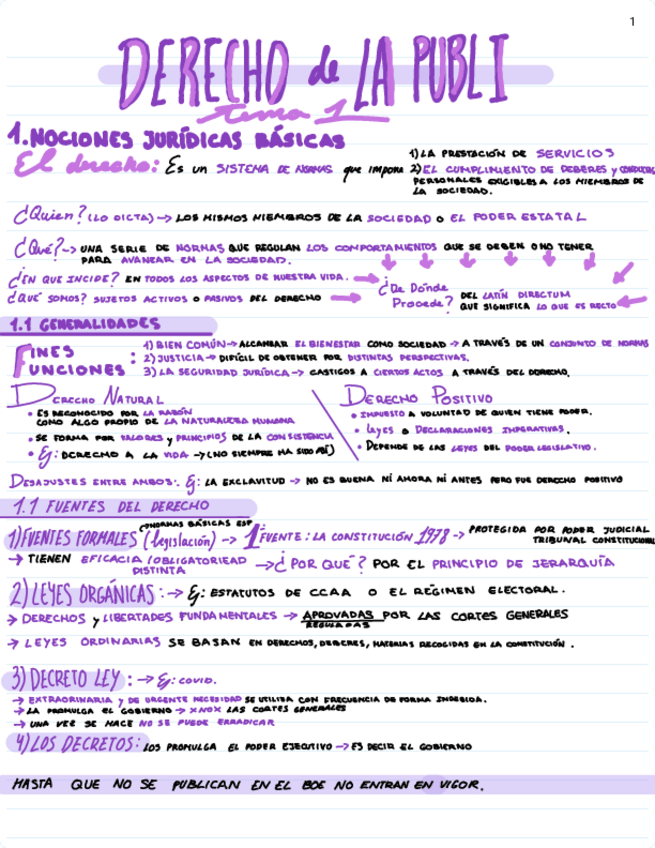 1
DERECHO de LA PUBLI
tema 1
1. NOCIONES JURÍDICAS BÁSICAS
El derecho: Es un SISTEMA DE NORMAS que impone
1) LA PRESTACIÓN DE SERVICIOS
2) EL CUMPLIMIENTO DE DEBERES y
PERSONALES EXIGIBLES A LOS MIEMBROS DE
LA SOCIEDAD.
¿Quien? (LO DICTA) → LOS MISMOS MIEMBROS DE LA SOCIEDAD o EL PODER ESTATAL
¿Qué? → UNA SERIE DE NORMAS QUE REGULAN LOS COMPORTAMIENTOS QUE SE DEBEN O NO TENER
PARA AVANZAR EN LA SOCIEDAD.
¿EN QUE INCIDE? EN TODOS LOS ASPECTOS DE NUESTRA VIDA. →
¿QUÉ SOMOS? SUJETOS ACTIVOS O PASIVOS DEL DERECHO →
¿De Donde Procede?
DEL LATÍN DIRECTUM
QUE SIGNIFICA LO QUE ES RECTO
1.1 GENERALIDADES
FINES
FUNCIONES :
1) BIEN COMÚN → ALCANZAR EL BIENESTAR COMO SOCIEDAD → A TRAVÉS DE UN CONJUNTO DE NORMAS
2) JUSTICIA → DIFÍCIL DE OBTENER POR DISTINTAS PERSPECTIVAS.
3) LA SEGURIDAD JURÍDICA → CASTIGOS A CIERTOS ACTOS A TRAVÉS DEL DERECHO.
DERECHO NATURAL
• ES RECONOCIDO POR LA RAZÓN
COMO ALGO PROPIO DE LA NATURALEZA HUMANA
• SE FORMA POR VALORES y PRINCIPIOS DE LA CONSISTENCIA
• Ej: DERECHO A LA VIDA → (NO SIEMPRE HA SIDO ASÍ)
DERECHO POSITIVO
• IMPUESTO A VOLUNTAD DE QUIEN TIENE PODER.
• Leyes o DECLARACIONES IMPERATIVAS.
• DEPENDE DE LAS LEYES DEL PODER LEGISLATIVO.
DESAJUSTES ENTRE AMBOS: Ej: LA EXCLAVITUD → NO ES BUENA NI AHORA NI ANTES PERO FUE DERECHO POSITIVO
1.1 FUENTES DEL DERECHO
→NORMAS BÁSICAS ESP
1) FUENTES FORMALES (legislación) → 1ª FUENTE: LA CONSTITUCIÓN 1978 → PROTEGIDA POR PODER JUDICIAL
TRIBUNAL CONSTITUCIONAL
→ TIENEN EFICACIA / OBLIGATORIEAD
DISTINTA
→ ¿POR QUÉ? POR EL PRINCIPIO DE JERARQUÍA
2) LEYES ORGÁNICAS: → Ej: ESTATUTOS DE CCAA O EL RÉGIMEN ELECTORAL.
→ DERECHOS y LIBERTADES FUNDAMENTALES → APROVADAS POR LAS CORTES GENERALES
REGULADAS
→ LEYES ORDINARIAS SE BASAN EN DERECHOS, DEBERES, MATERIAS RECOGIDAS EN LA CONSTITUCIÓN.
3) DECRETO LEY: → Ej: COVID.
→ EXTRAORINARIA y DE URGENTE NECESIDAD SE UTILIZA CON FRECUENCIA DE FORMA INDEBIDA.
→ LA PROMULGA EL GOBIERNO → XNOX LAS CORTES GENERALES
→ UNA VEZ SE HACE NO SE PUEDE ERRADICAR
4) LOS DECRETOS: LOS PROMULGA EL PODER EJECUTIVO → ES DECIR EL GOBIERNO
HASTA QUE NO SE PUBLICAN EN EL BOE NO ENTRAN EN VIGOR.